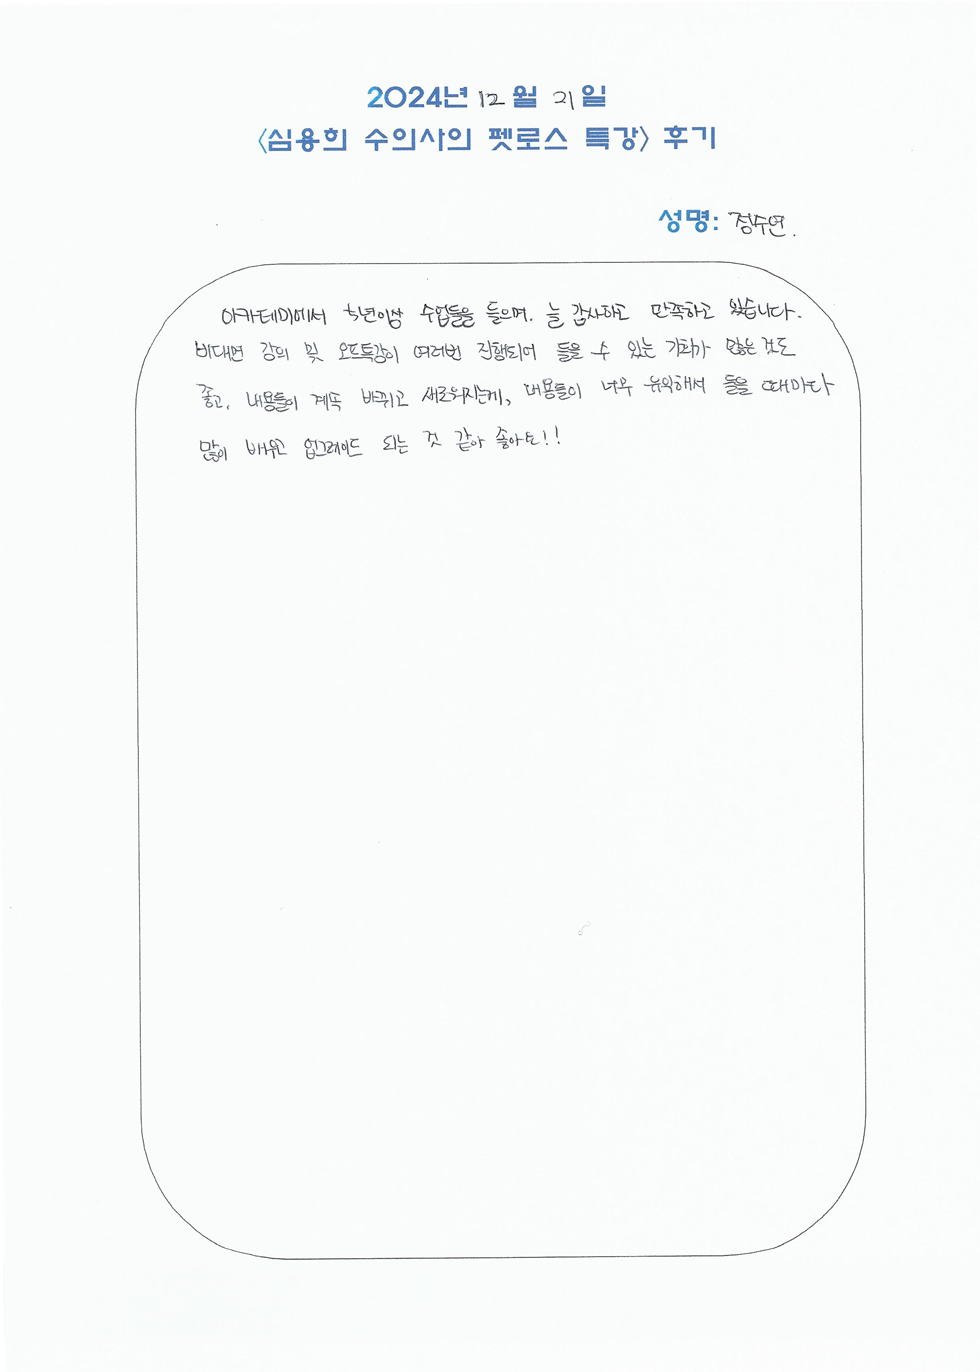 2024년 12월 21일
<심용희 수의사의 펫로스 특강> 후기
성명: 정수연.
아카데미에서 1년이상 수업들을 들으며. 늘 감사하고 만족하고 있습니다.
비대면 강의 및 오프특강이 여러번 진행되어 들을 수 있는 기회가 많은 것도
좋고, 내용들이 계속 바뀌고 새로워지는게, 내용들이 너무 유익해서 들을 때마다
많이 배우고 업그레이드 되는 것 같아 좋아요!!